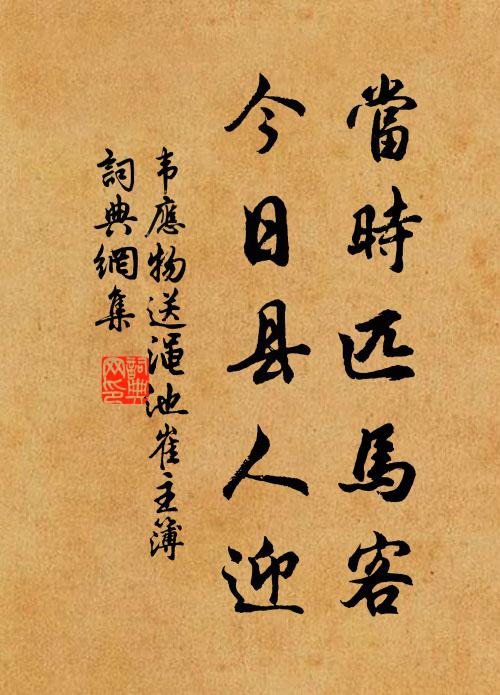 當時匹馬客
今日县人迎
韦應物送渑池崔主簿
詞典網集
詞典
网印